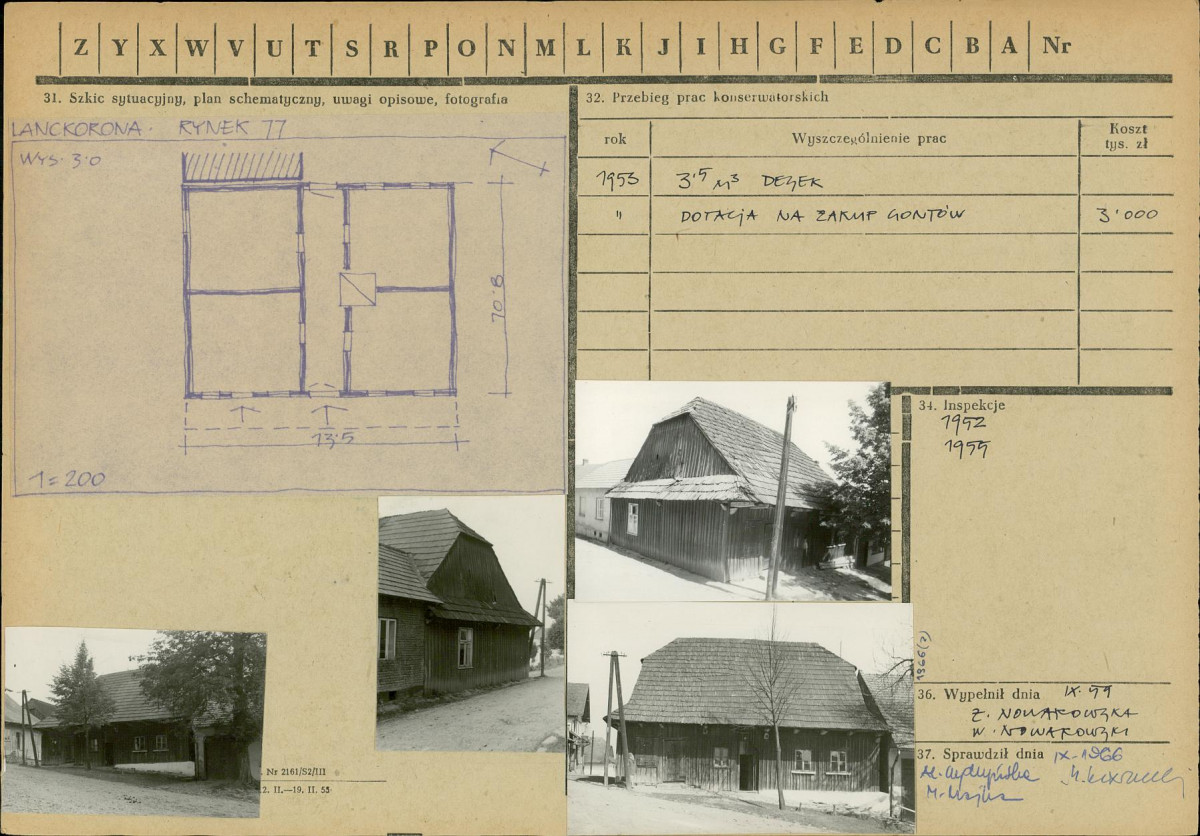 Z Y X W V U T S R P O N M L K J I H G F E D C B A Nr
31. Szkic sytuacyjny, plan schematyczny, uwagi opisowe, fotografia
LANCKORONA. RYNEK 77
WYS. 3.0
10.8
13.5
1=200
Nr 2161/S2/III
2. II.—19. II. 55
32. Przebieg prac konserwatorskich
rok Wyszczególnienie prac Koszt
tys. zł
1953 3.5 M3 DESEK
" DOTACJA NA ZAKUP GONTÓW 3'000
34. Inspekcje
1952
1955
1966 (?)
36. Wypełnił dnia IX.59
Z. NOWAKOWSKA
W. NOWAKOWSKI
37. Sprawdził dnia IX-1966